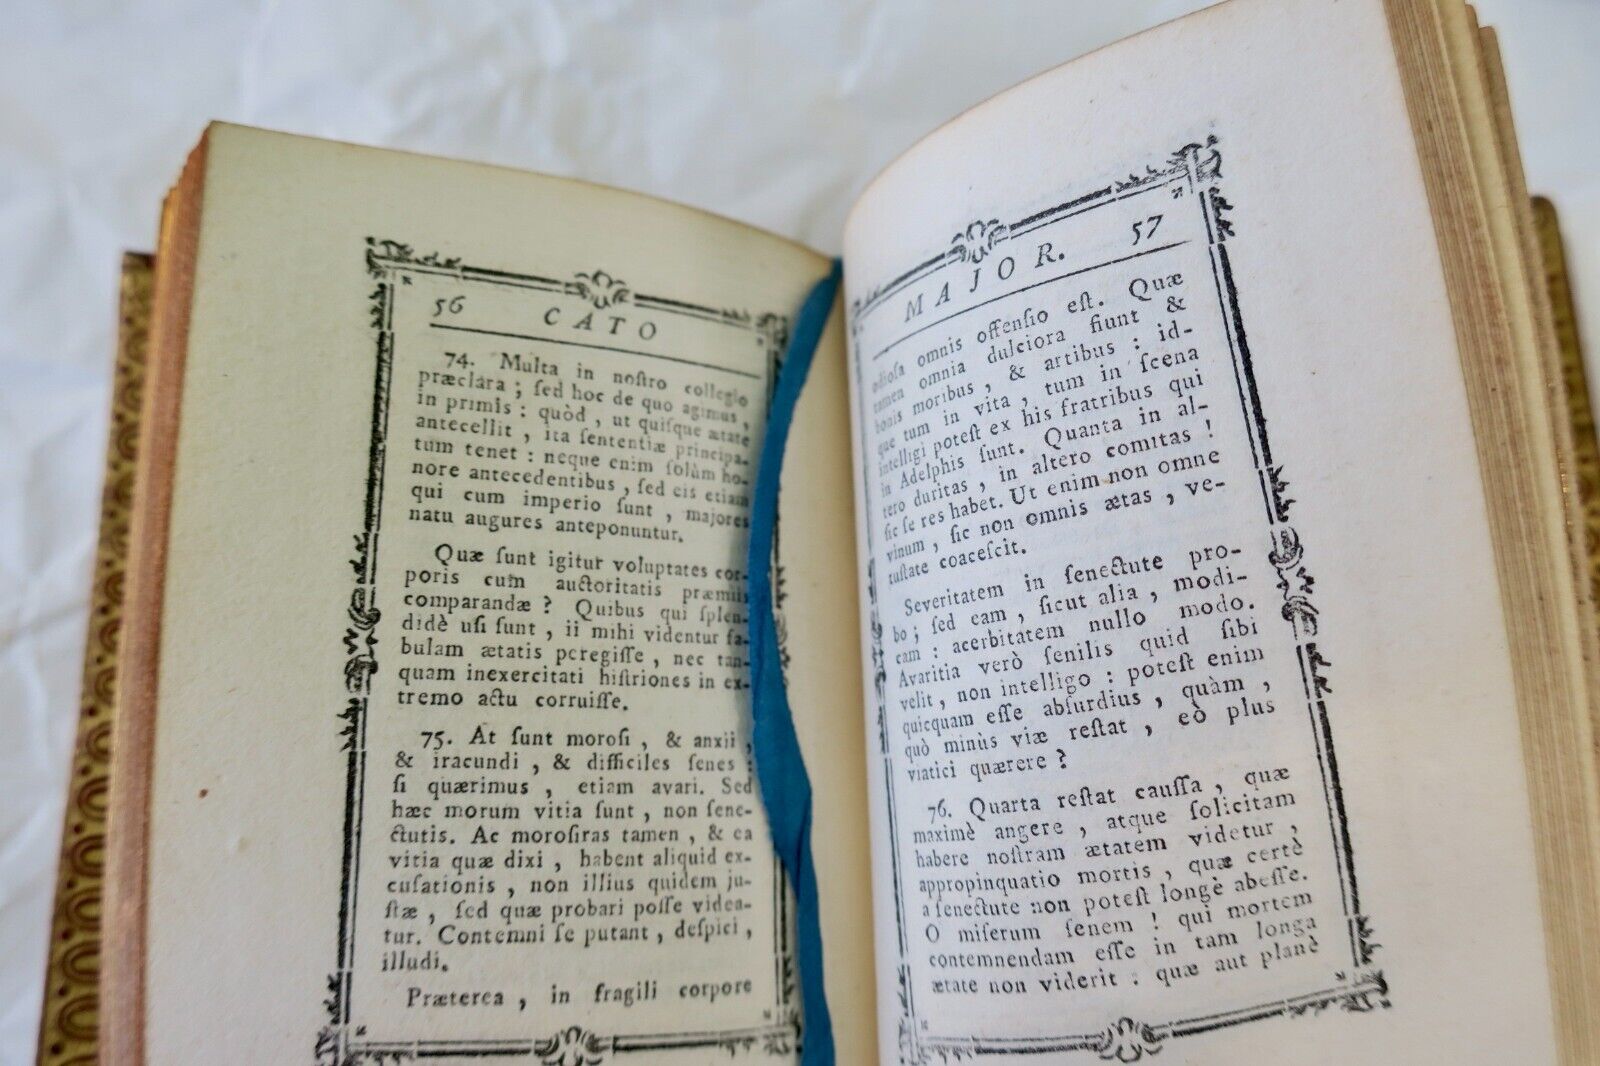 56 CATO
74. Multa in noſtro collegio
præclara ; ſed hoc de quo agimus ,
in primis : quòd , ut quiſque ætate
antecellit , ita ſententiæ principa-
tum tenet : neque enim ſolùm ho-
nore antecedentibus , ſed eis etiam
qui cum imperio ſunt , majores
natu augures anteponuntur.
Quæ ſunt igitur voluptates cor-
poris cum auctoritatis præmiis
comparandæ ? Quibus qui ſplen-
didè uſi ſunt , ii mihi videntur fa-
bulam ætatis peregiſſe , nec tan-
quam inexercitati hiſtriones in ex-
tremo actu corruiſſe.
75. At ſunt moroſi , & anxii ,
& iracundi , & difficiles ſenes :
ſi quærimus , etiam avari. Sed
hæc morum vitia ſunt , non ſene-
ctutis. Ac moroſiras tamen , & ea
vitia quæ dixi , habent aliquid ex-
cuſationis , non illius quidem ju-
ſtæ , ſed quæ probari poſſe videa-
tur. Contemni ſe putant , deſpici ,
illudi.
Præterea , in fragili corpore
MAJOR. 57
odioſa omnis offenſio eſt. Quæ
tamen omnia dulciora fiunt &
bonis moribus , & artibus : id-
que tum in vita , tum in ſcena
intelligi poteſt ex his fratribus qui
in Adelphis ſunt. Quanta in al-
tero duritas , in altero comitas !
ſic ſe res habet. Ut enim non omne
vinum , ſic non omnis ætas , ve-
tuſtate coaceſcit.
Severitatem in ſenectute pro-
bo ; ſed eam , ſicut alia , modi-
cam : acerbitatem nullo modo.
Avaritia verò ſenilis quid ſibi
velit , non intelligo : poteſt enim
quicquam eſſe abſurdius , quàm ,
quò minùs viæ reſtat , eò plus
viatici quærere ?
76. Quarta reſtat cauſſa , quæ
maximè angere , atque ſolicitam
habere noſtram ætatem videtur ,
appropinquatio mortis , quæ certè
a ſenectute non poteſt longè abeſſe.
O miſerum ſenem ! qui mortem
contemnendam eſſe in tam longa
ætate non viderit : quæ aut planè